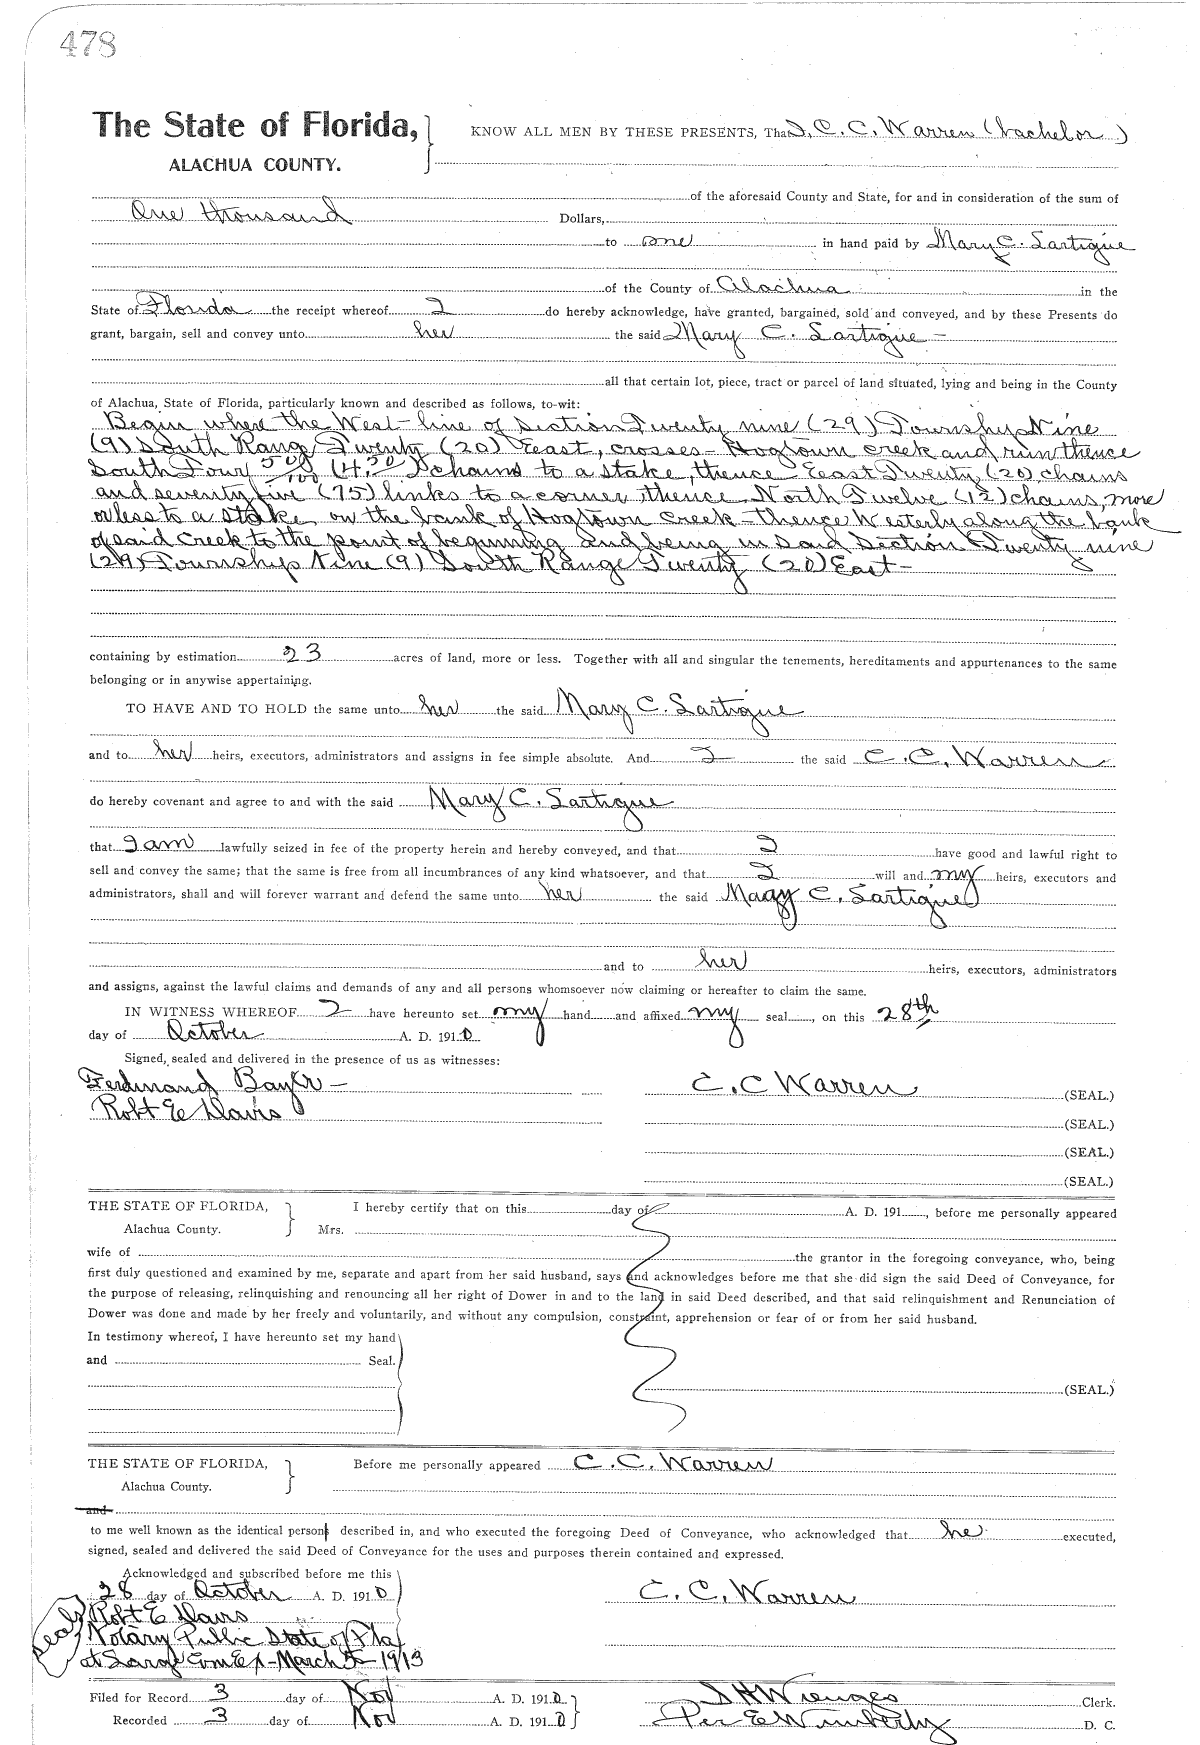 478
The State of Florida,
ALACHUA COUNTY.
KNOW ALL MEN BY THESE PRESENTS, That I, C. C. Warren (bachelor)
of the aforesaid County and State, for and in consideration of the sum of
One thousand Dollars,
to me in hand paid by Mary C. Sartigue
of the County of Alachua in the
State of Florida the receipt whereof I do hereby acknowledge, have granted, bargained, sold and conveyed, and by these Presents do
grant, bargain, sell and convey unto her the said Mary C. Sartigue
all that certain lot, piece, tract or parcel of land situated, lying and being in the County
of Alachua, State of Florida, particularly known and described as follows, to-wit:
Begin where the West line of Section Twenty nine (29) Township Nine
(9) South Range Twenty (20) East, crosses Hogtown creek and run thence
South Four 50/100 (4.50) chains to a stake, thence East Twenty (20) chains
and seventy five (75) links to a corner thence North Twelve (12) chains, more
or less to a stake on the bank of Hogtown Creek - thence Westerly along the bank
of said Creek to the point of beginning and being in said Section Twenty nine
(29) Township Nine (9) South Range Twenty (20) East -
containing by estimation 23 acres of land, more or less. Together with all and singular the tenements, hereditaments and appurtenances to the same
belonging or in anywise appertaining.
TO HAVE AND TO HOLD the same unto her the said Mary C. Sartigue
and to her heirs, executors, administrators and assigns in fee simple absolute. And I the said C. C. Warren
do hereby covenant and agree to and with the said Mary C. Sartigue
that I am lawfully seized in fee of the property herein and hereby conveyed, and that I have good and lawful right to
sell and convey the same; that the same is free from all incumbrances of any kind whatsoever, and that I will and my heirs, executors and
administrators, shall and will forever warrant and defend the same unto her the said Mary C. Sartigue
and to her heirs, executors, administrators
and assigns, against the lawful claims and demands of any and all persons whomsoever now claiming or hereafter to claim the same.
IN WITNESS WHEREOF I have hereunto set my hand and affixed my seal, on this 28th
day of October A. D. 1910
Signed, sealed and delivered in the presence of us as witnesses:
Ferdinand Bayer -
C. C Warren (SEAL.)
Robt E Davis
(SEAL.)
(SEAL.)
(SEAL.)
THE STATE OF FLORIDA,
Alachua County.
I hereby certify that on this day of A. D. 191 , before me personally appeared
Mrs.
wife of the grantor in the foregoing conveyance, who, being
first duly questioned and examined by me, separate and apart from her said husband, says and acknowledges before me that she did sign the said Deed of Conveyance, for
the purpose of releasing, relinquishing and renouncing all her right of Dower in and to the land in said Deed described, and that said relinquishment and Renunciation of
Dower was done and made by her freely and voluntarily, and without any compulsion, constraint, apprehension or fear of or from her said husband.
In testimony whereof, I have hereunto set my hand
and Seal.
(SEAL.)
THE STATE OF FLORIDA,
Alachua County.
Before me personally appeared C. C. Warren
and
to me well known as the identical person described in, and who executed the foregoing Deed of Conveyance, who acknowledged that he executed,
signed, sealed and delivered the said Deed of Conveyance for the uses and purposes therein contained and expressed.
Acknowledged and subscribed before me this
28 day of October A. D. 1910
C. C. Warren
Seal
Robt E Davis
Notary Public State of Fla
at Large Com Ex - March 5 - 1913
Filed for Record 3 day of Nov A. D. 1910
S H Wienges Clerk.
Recorded 3 day of Nov A. D. 1910
Per E Wimberly D. C.